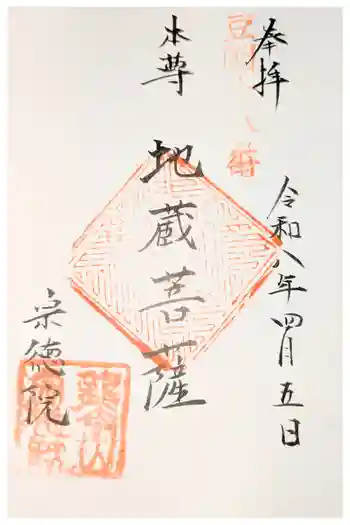 奉拝
令和八年四月五日
本尊
地蔵菩薩
宗徳院